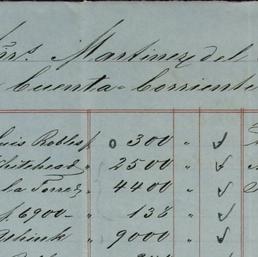 Srs. Martinez del
Cuenta Corriente
Luis Robles 300 "
Whitehead " 2500 "
la Torre " 4400 "
$6900 - " 138 "
" 9000 "